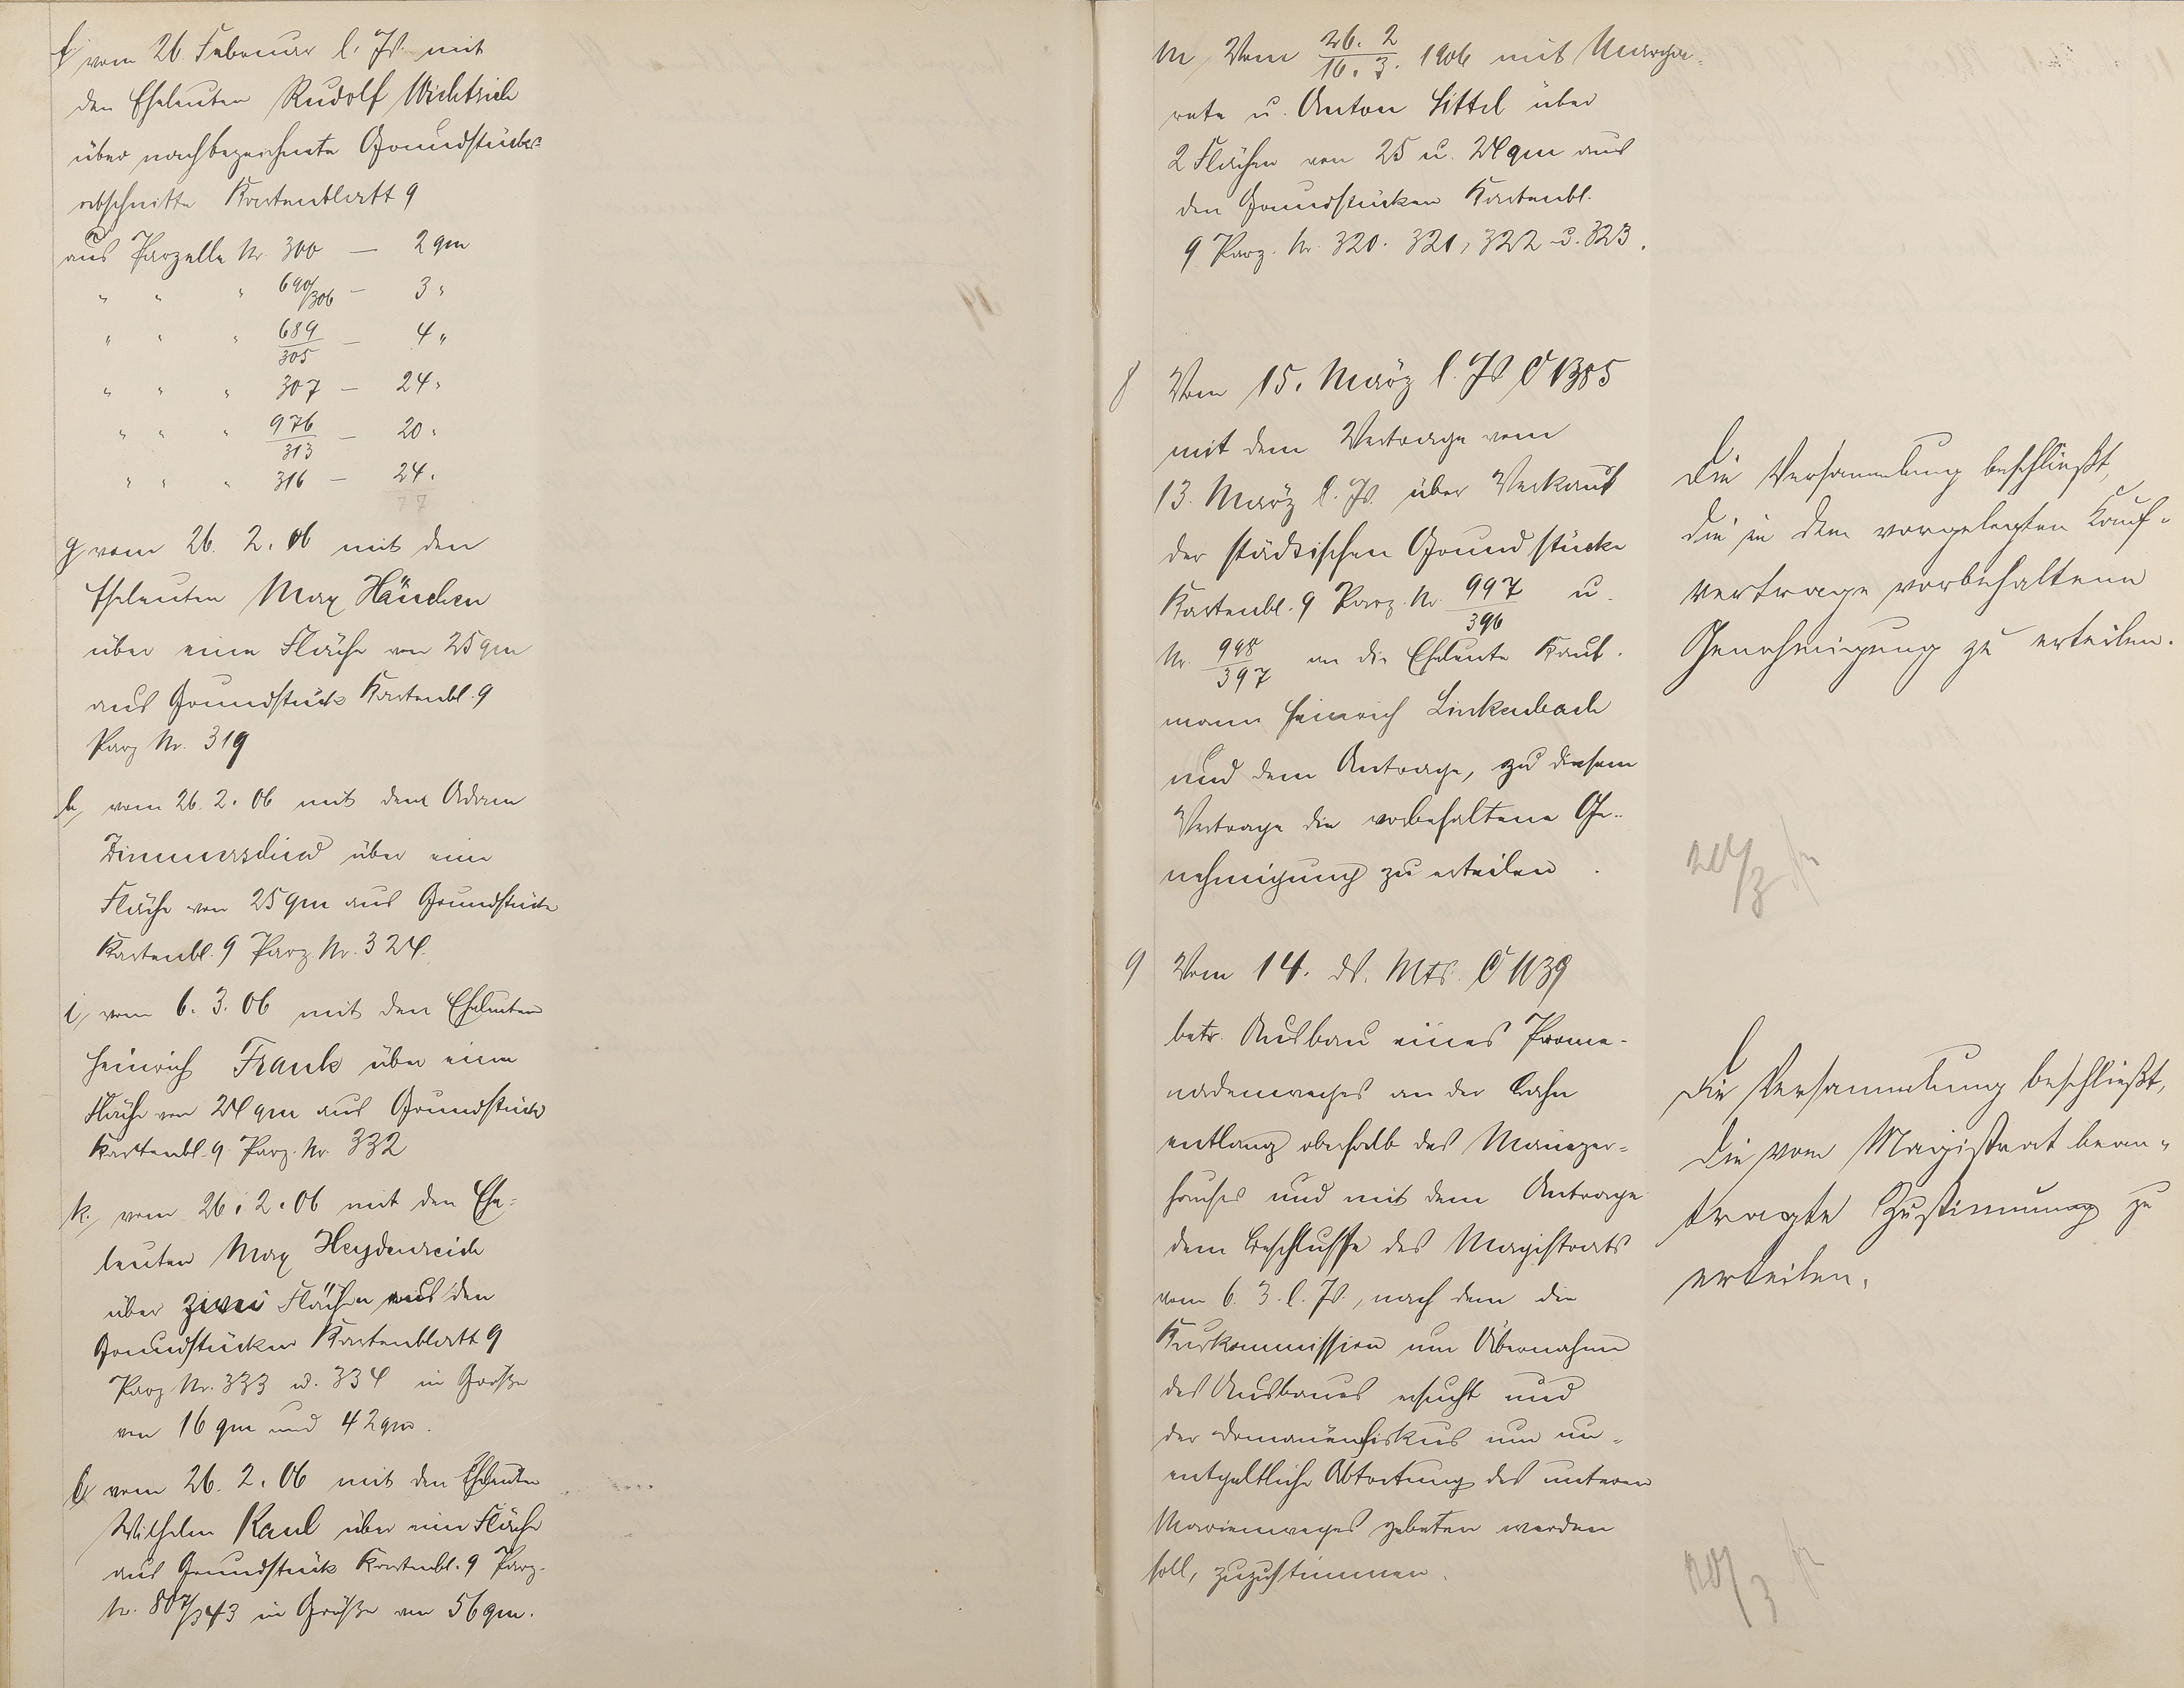 f, vom 26. Februar l. Js. mit
den Eheleuten Rudolf Wichtrich
über nachbezeichnete Grundstücks-
abschnitte Kartenblatt 9
aus Parzelle Nr. 300 — 2 qm
" " " 690/306 — 3 "
" " " 689/305 — 4 "
" " " 307 — 24 "
" " " 976/313 — 20 "
" " " 316 — 24 "
77
g vom 26. 2. 06 mit den
Eheleuten Max Häuchen
über eine Fläche von 25 qm
aus Grundstück Kartenbl. 9
Parz Nr. 319
h, vom 26. 2. 06 mit dem Adam
über eine
Fläche von 25 qm aus Grundstück
Kartenbl. 9 Parz. Nr. 324.
i, vom 6. 3. 06 mit den Eheleuten
Heinrich Frank über eine
Fläche von 24 qm aus Grundstück
Kartenbl. 9 Parz. Nr. 332
k, vom 26. 2. 06 mit den Ehe-
leuten Max Heydenreich
über zwei Flächen aus den
Grundstücken Kartenblatt 9
Parz Nr. 333 u. 334 in Größe
von 16 qm und 42 qm.
l, vom 26. 2. 06 mit den Eheleuten
Wilhelm Kaul über eine Fläche
aus Grundstück Kartenbl. 9 Parz.
Nr. 807/343 in Größe von 56 qm.
m, Vom 26. 2/16. 3. 1906 mit Marga-
rete u. Anton Sittel über
2 Flächen von 25 u. 24 qm aus
den Grundstücken Kartenbl.
9 Parz. Nr. 320. 321, 322 u. 323.
8 Vom 15. März l. Js C 1385
mit dem Vertrage vom
13. März l. Js. über Verkauf
der städtischen Grundstücke
Kartenbl. 9 Parz. Nr. 997/396 u.
Nr. 998/397 an die Eheleute Kauf-
mann Heinrich Linkenbach
und dem Antrage, zu diesem
Vertrage die vorbehaltene Ge-
nehmigung zu erteilen.
Die Versammlung beschließt,
die in dem vorgelegten Kauf-
vertrage vorbehaltene
Genehmigung zu erteilen.
20/3
9 Vom 14. ds. Mts. C 1139
betr. Ausbau eines Prome-
nadenweges an der Lahn
entlang oberhalb des Mainzer-
hauses und mit dem Antrage
dem Beschlusse des Magistrats
vom 6. 3. l. Js., nach dem die
Kurkommission um Übernahme
des Ausbaues ersucht und
der Domänenfiskus um un-
entgeltliche Abtretung des unteren
Marienweges gebeten werden
soll, zuzustimmen.
Die Versammlung beschließt,
die vom Magistrat bean-
tragte Zustimmung zu
erteilen.
20/3